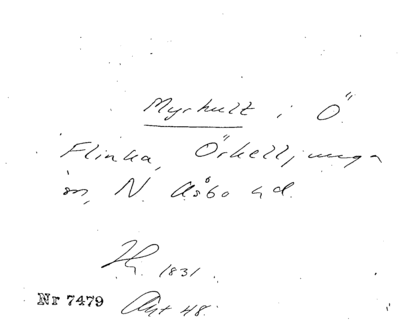 Myrhult i Ö.
Flinka, Örkelljunga
sn, N. Åsbo hd.
1831.
Nr 7479 Akt 48.